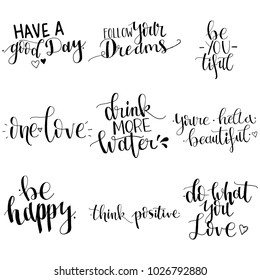 HAVE A
good Day
FOLLOW your
Dreams
be
-YOU-
tiful
one love
drink
MORE
water
you're hella
beautiful
be
happy.
think positive
do what
you
Love
shutterstock.com • 1026792880